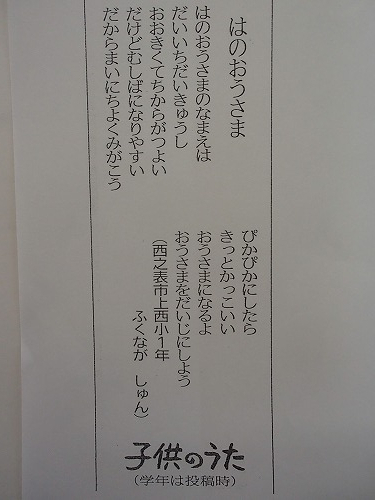 はのおうさま
はのおうさまのなまえは
だいいちだいきゅうし
おおきくてちからがつよい
だけどむしばになりやすい
だからまいにちよくみがこう
ぴかぴかにしたら
きっとかっこいい
おうさまになるよ
おうさまをだいじにしよう
(西之表市上西小1年
ふくなが しゅん)
子供のうた
(学年は投稿時)